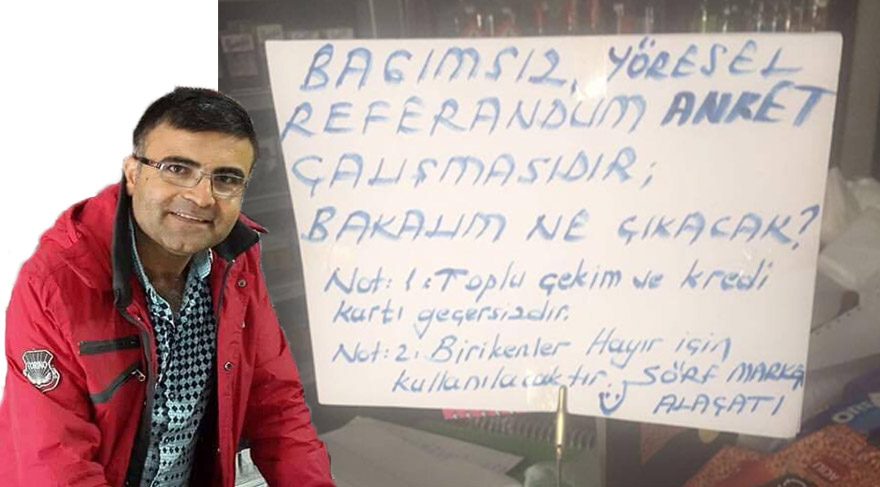 BAGIMSIZ, YÖRESEL
REFERANDUM ANKET
ÇALIŞMASIDIR;
BAKALIM NE ÇIKACAK?
Not: 1: Toplu çekim ve kredi
kartı geçersizdir.
Not: 2: Birikenler Hayır için
kullanılacaktır. SÖRF MARKET
ALAÇATI
TORINO